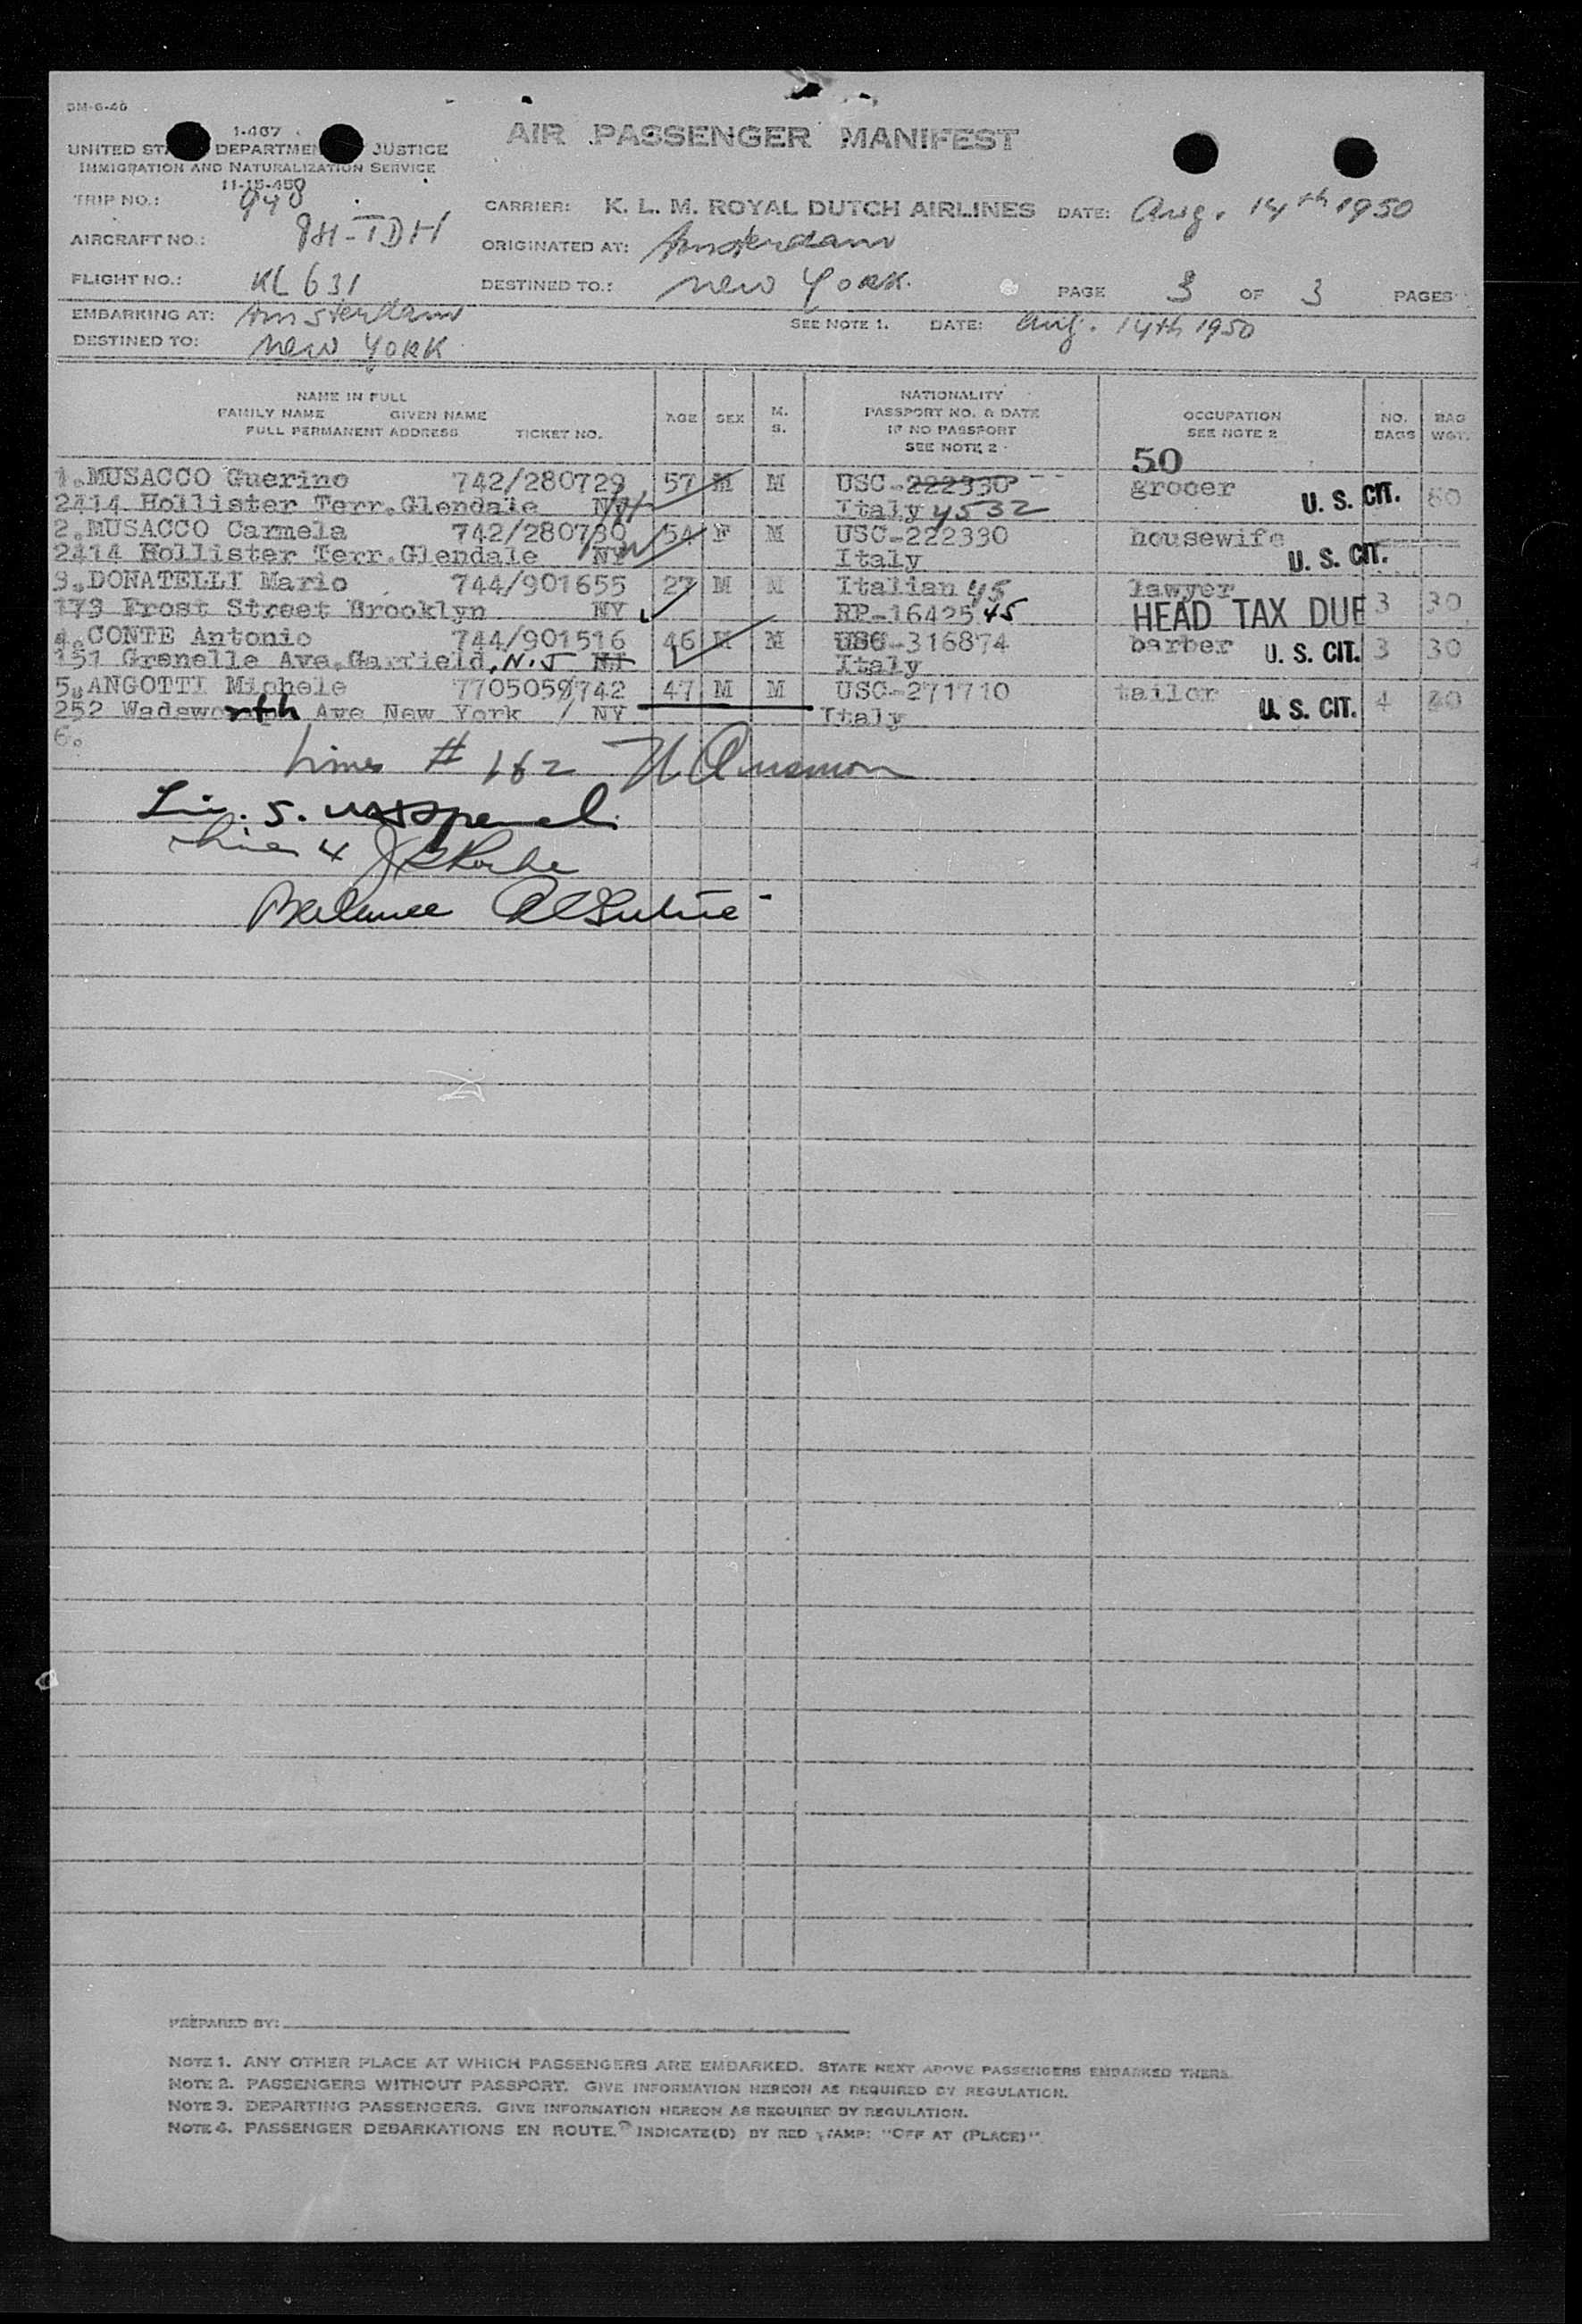 DM-6-46
1-467
UNITED STA DEPARTMEN JUSTICE
IMMIGRATION AND NATURALIZATION SERVICE
11-15-45
AIR PASSENGER MANIFEST
TRIP NO.: 948
CARRIER: K. L. M. ROYAL DUTCH AIRLINES DATE: Aug. 14th 1950
AIRCRAFT NO.: PH-TDH
ORIGINATED AT: Amsterdam
FLIGHT NO.: KL 631
DESTINED TO.: New York. PAGE 3 OF 3 PAGES
EMBARKING AT: Amsterdam
SEE NOTE 1. DATE: Aug. 14th 1950
DESTINED TO: New York
NAME IN FULL
FAMILY NAME GIVEN NAME
FULL PERMANENT ADDRESS TICKET NO.
AGE SEX M. S.
NATIONALITY
PASSPORT NO. & DATE
IF NO PASSPORT
SEE NOTE 2
OCCUPATION
SEE NOTE 2
NO. BAGS
BAG WGT.
50
1.MUSACCO Guerino 742/280729 57 M M USC-222330 grocer U. S. CIT. 60
2414 Hollister Terr.Glendale NY Italy 4532
2.MUSACCO Carmela 742/280730 54 F M USC-222330 housewife
2414 Hollister Terr.Glendale NY Italy U. S. CIT.
3.DONATELLI Mario 744/901655 27 M M Italian 45 lawyer
173 Frost Street Brooklyn NY RP-16425 45 HEAD TAX DUE 3 30
4.CONTE Antonio 744/901516 46 M M USC-316874 barber U. S. CIT. 3 30
151 Grenelle Ave.Garfield, N.J NJ Italy
5.ANGOTTI Michele 7705059/742 47 M M USC-271710 tailor U. S. CIT. 4 40
252 Wadsworth Ave New York / NY Italy
6.
Lines # 1&2
Lin. 5.
Line 4
Balance
PREPARED BY:
NOTE 1. ANY OTHER PLACE AT WHICH PASSENGERS ARE EMBARKED. STATE NEXT ABOVE PASSENGERS EMBARKED THERE.
NOTE 2. PASSENGERS WITHOUT PASSPORT. GIVE INFORMATION HEREON AS REQUIRED BY REGULATION.
NOTE 3. DEPARTING PASSENGERS. GIVE INFORMATION HEREON AS REQUIRED BY REGULATION.
NOTE 4. PASSENGER DEBARKATIONS EN ROUTE. INDICATE(D) BY RED STAMP: "OFF AT (PLACE)".